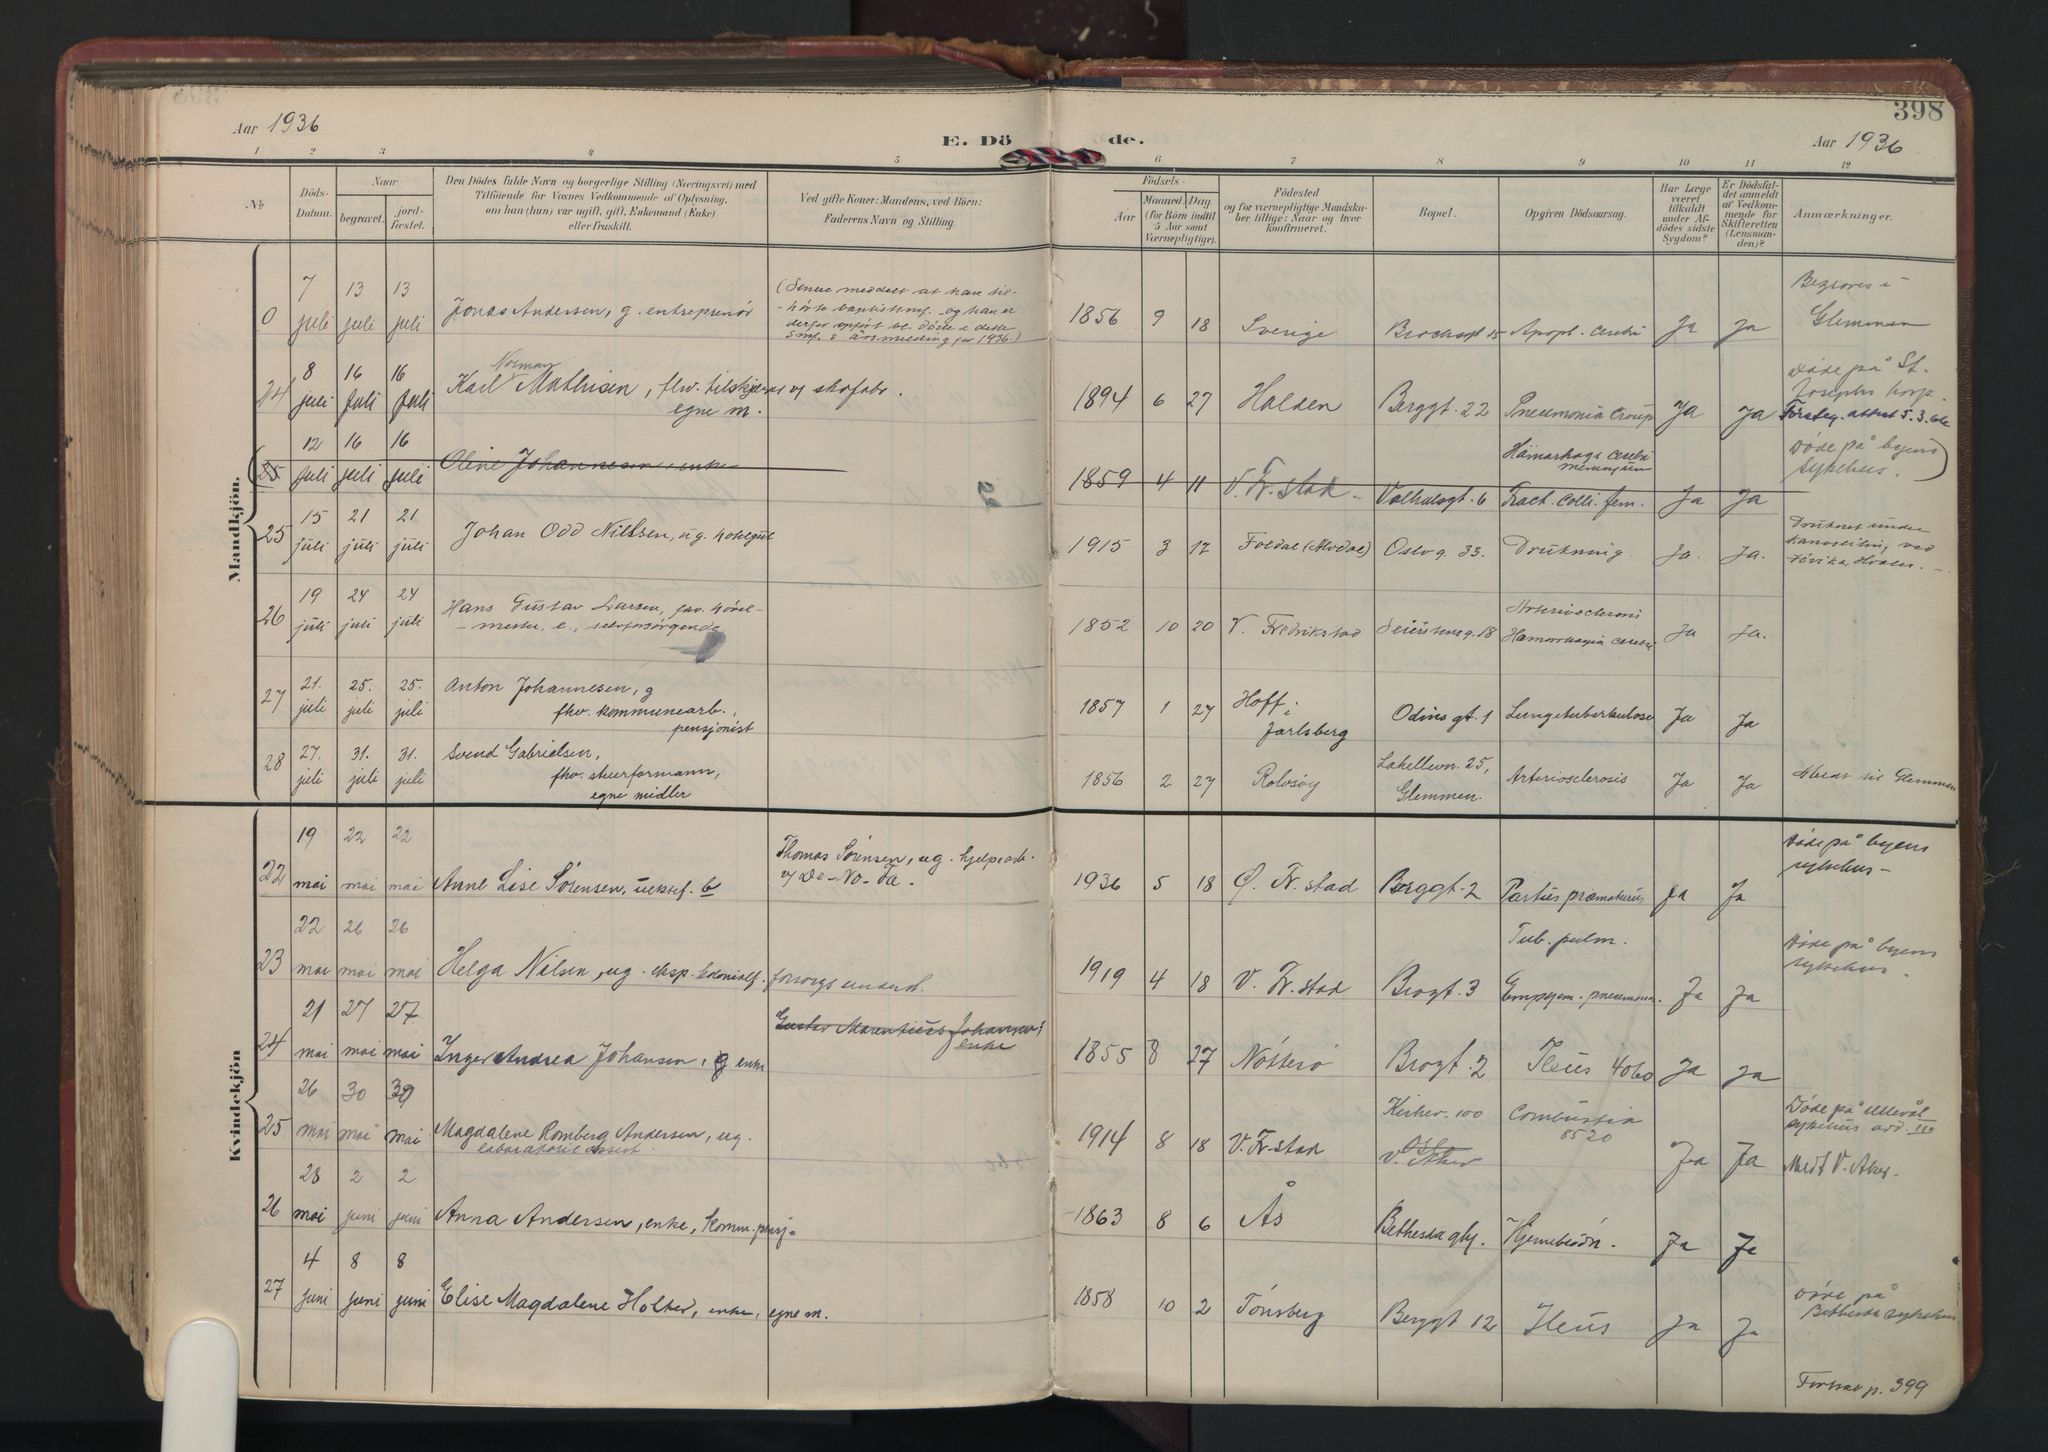 398
Aar 1936
E. Dö
de.
Aar 1936
1 2 3 4 5 6 7 8 9 10 11 12
No
Döds-
Datum.
Naar
begravet.
jord-
fæstet.
Den Dödes fulde Navn og borgerlige Stilling (Næringsvei) med
Tilföiende for Voxnes Vedkommende af Oplysning,
om han (hun) var ugift, gift, Enkemand (Enke)
eller fraskilt.
Ved gifte Koner: Mandens, ved Börn:
Faderens Navn og Stilling.
Födsels-
Aar
Maaned. Dag.
(for Börn indtil
5 Aar samt
Værnepligtige).
Födested
og for værnepligtige Mandsku-
ber tillige: Naar og hvor
konfirmeret.
Bopæl.
Opgiven Dödsaarsag.
Har Læge
været
tilkaldt
under Af-
dödes sidste
Sygdom?
Er Dödsfal-
det anmeldt
af Vedkom-
mende for
Skifteretten
(Lensman-
den)?
Anmærkninger.
Mandkjön.
0 7 juli 13 juli 13 juli Jonas Andersen, g. entreprenör
(Senere meddelt at han til-
hörte baptistsmf. og han er
derfor opfört bl. döde i dette
smf.s årsmelding for 1936.)
1856 9 18 Sverige Apopl. cerebri Ja Ja
Begraves i
Glemmen
24 8 juli 16 juli 16 juli Karl Norman Mathisen, flv. tilskjærer v/ skofabr.
egne m.
1894 6 27 Halden Berggt. 22 Pneumonia croup Ja Ja
Döde på St.
Josephs hosp.
25 12 juli 16 juli 16 juli Oline Johannesen, enke
1859 4 11 V. Fr.stad Valhalsgt. 6 Fract. colli. fem. Ja Ja
Döde på byens
sykehus.
25 15 juli 21 juli 21 juli Johan Odd Nilssen, ug.
1915 3 17 Foldal (Alvdal) Oslo g. 33. Drukning Ja. Ja.
Druknet under
kanoseiling ved
26 19 juli 24 juli 24 juli Hans Gustav Larsen, fhv. hövel-
mester, e., selvforsörgende
1852 10 20 V. Fredrikstad
Arteriosclerosis
Hæmorrhagia cerebri
Ja Ja.
27 21. juli 25. juli 25. juli Anton Johannesen, g
fhv. kommunearb.,
pensjonist
1857 1 27 Hoff i
Jarlsberg
Odins gt. 1 Lungetuberkulose Ja Ja
28 27. juli 31. juli 31. juli Svend Gabrielsen,
fhv. stuerformann,
egne midler
1856 2 27 Rolvsöy Lahellevn. 25,
Glemmen.
Arteriosclerosis Ja Ja
Meldt til Glemmen
Kvindekjön
22 19 mai 22 mai 22 mai Anne Lise Sörensen, uektef. b
Thomas Sörensen, ug. hjelpearb.
v/ De-No-Fa.
1936 5 18 Ø. Fr.stad Berggt. 2 Partus præmaturus Ja Ja
Döde på byens
sykehus
23 22 mai 26 mai 26 mai Helga Nilsen, ug. eksp. kolonialf. forsörgs underst.
1919 4 18 V. Fr.stad Brogt. 3
Tub. pulm.
Empyem. pneumonia. Ja Ja
Döde på byens
sykehus.
24 21 mai 27 mai 27 mai Inger Andrea Johansen, g enke
Gustav Marentius Johansen
enke
1855 8 27 Nötterö Brogt. 2 Ileus 4060 Ja Ja
25 26 mai 30 mai 30 mai Magdalene Romberg Andersen, ug.
laboratorieassist.
1914 8 18 V. Fr.stad
Kirkev. 100
Oslo
V. Aker
Combustia
8520
Ja Ja
Döde på Ullevål
sykehus avd. III
Meldt V. Aker.
26 28 mai 2 juni 2 juni Anna Andersen, enke, komm. pensj.
1863 8 6 Ås Bethesda ghj. Hjerneblödn. Ja Ja
27 4 juni 8 juni 8 juni Elise Magdalene Holter, enke, egne m.
1858 10 2 Tönsberg Berggt 12 Ileus Ja Ja
Döde på
Bethesda sykehus
Fortsat p. 399